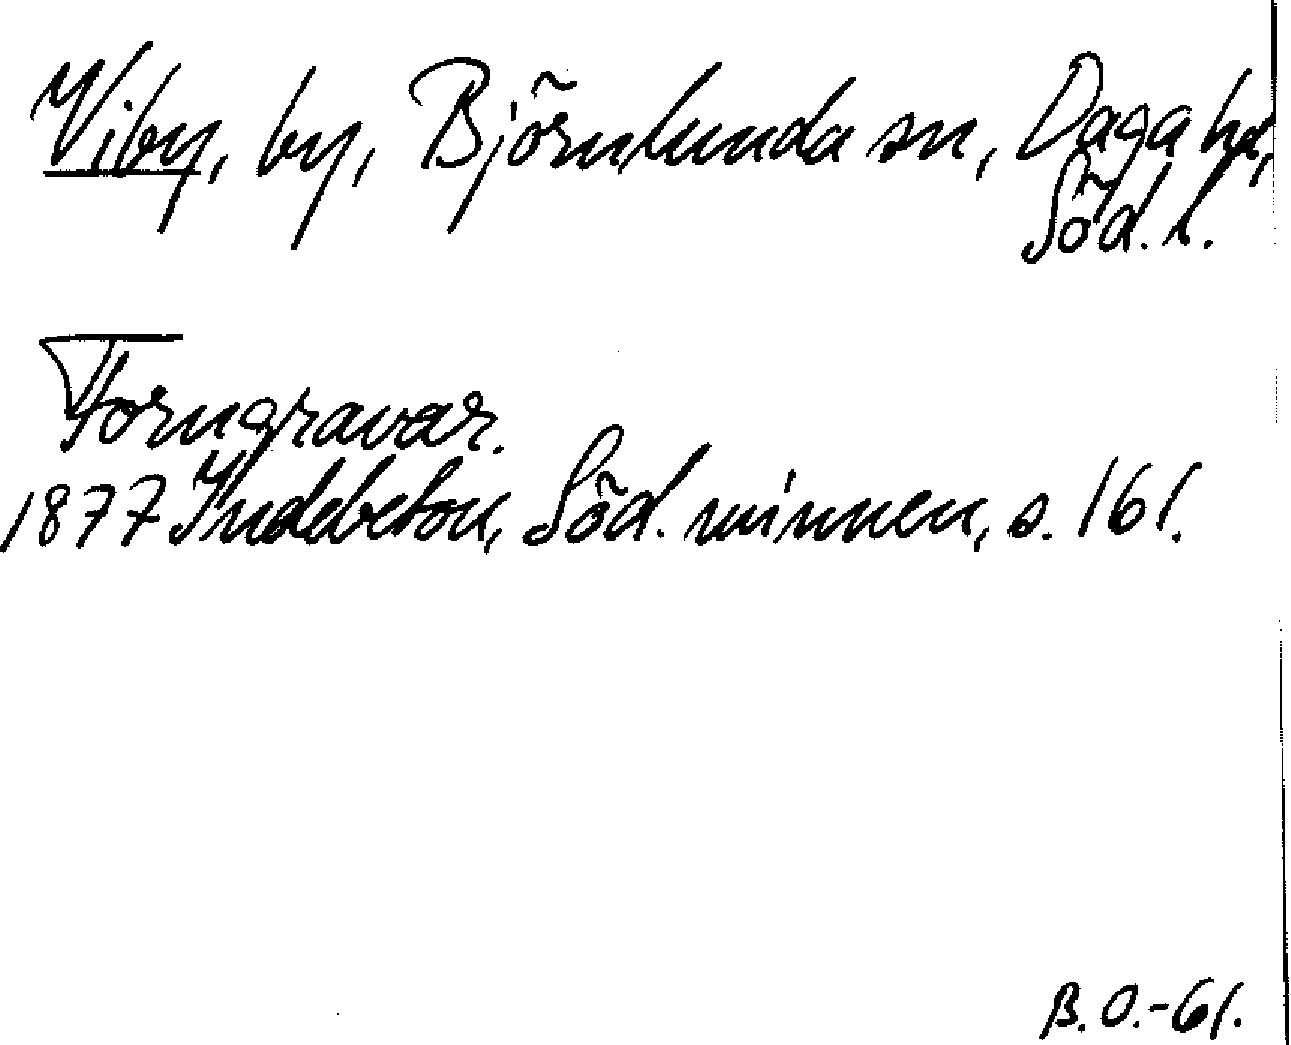 Viby, by, Björnlunda sn, Daga hd,
Söd. l.
Forngravar.
1877 Indebetou, Söd. minnen, s. 161.
B. O.-61.